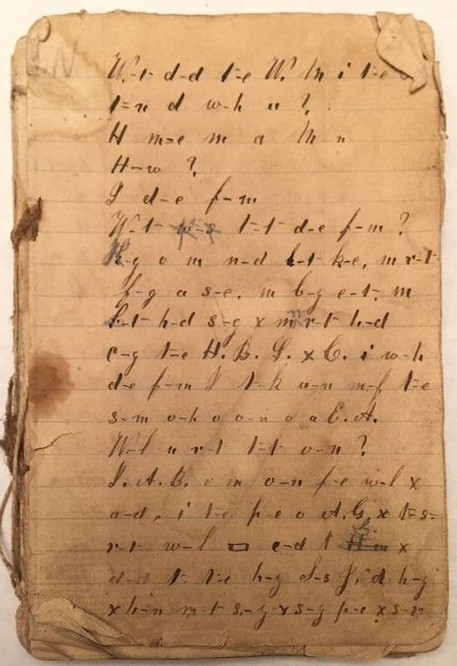 W-t d-d t-e W. M i t-e
t-n d w-h u ?
H m-e m a M-n
H-w ?
I d-e f-m
W-t t-t d-e f-m ?
K-g o m n-d l-t k-e, m r-t
f-g a s-e, m b-y e-t, m
L-t h-d s-g x m r-t h-d
c-g t-e H. B. S. x C. i w-h
d-e f-m I t-k u-n m-f t-e
s-m o-h o o-n o a E. A.
W-l u r-t t-t o-n ?
I. A. B. o m o-n f-e w-l x
a-d, i t-e p-e o A. G. x t-s-
r-t w-l ▭ e-d t x
d-d t t-e h-y S-s J, d h-y
x h-n m-t s-y x s-y p-e x s-r